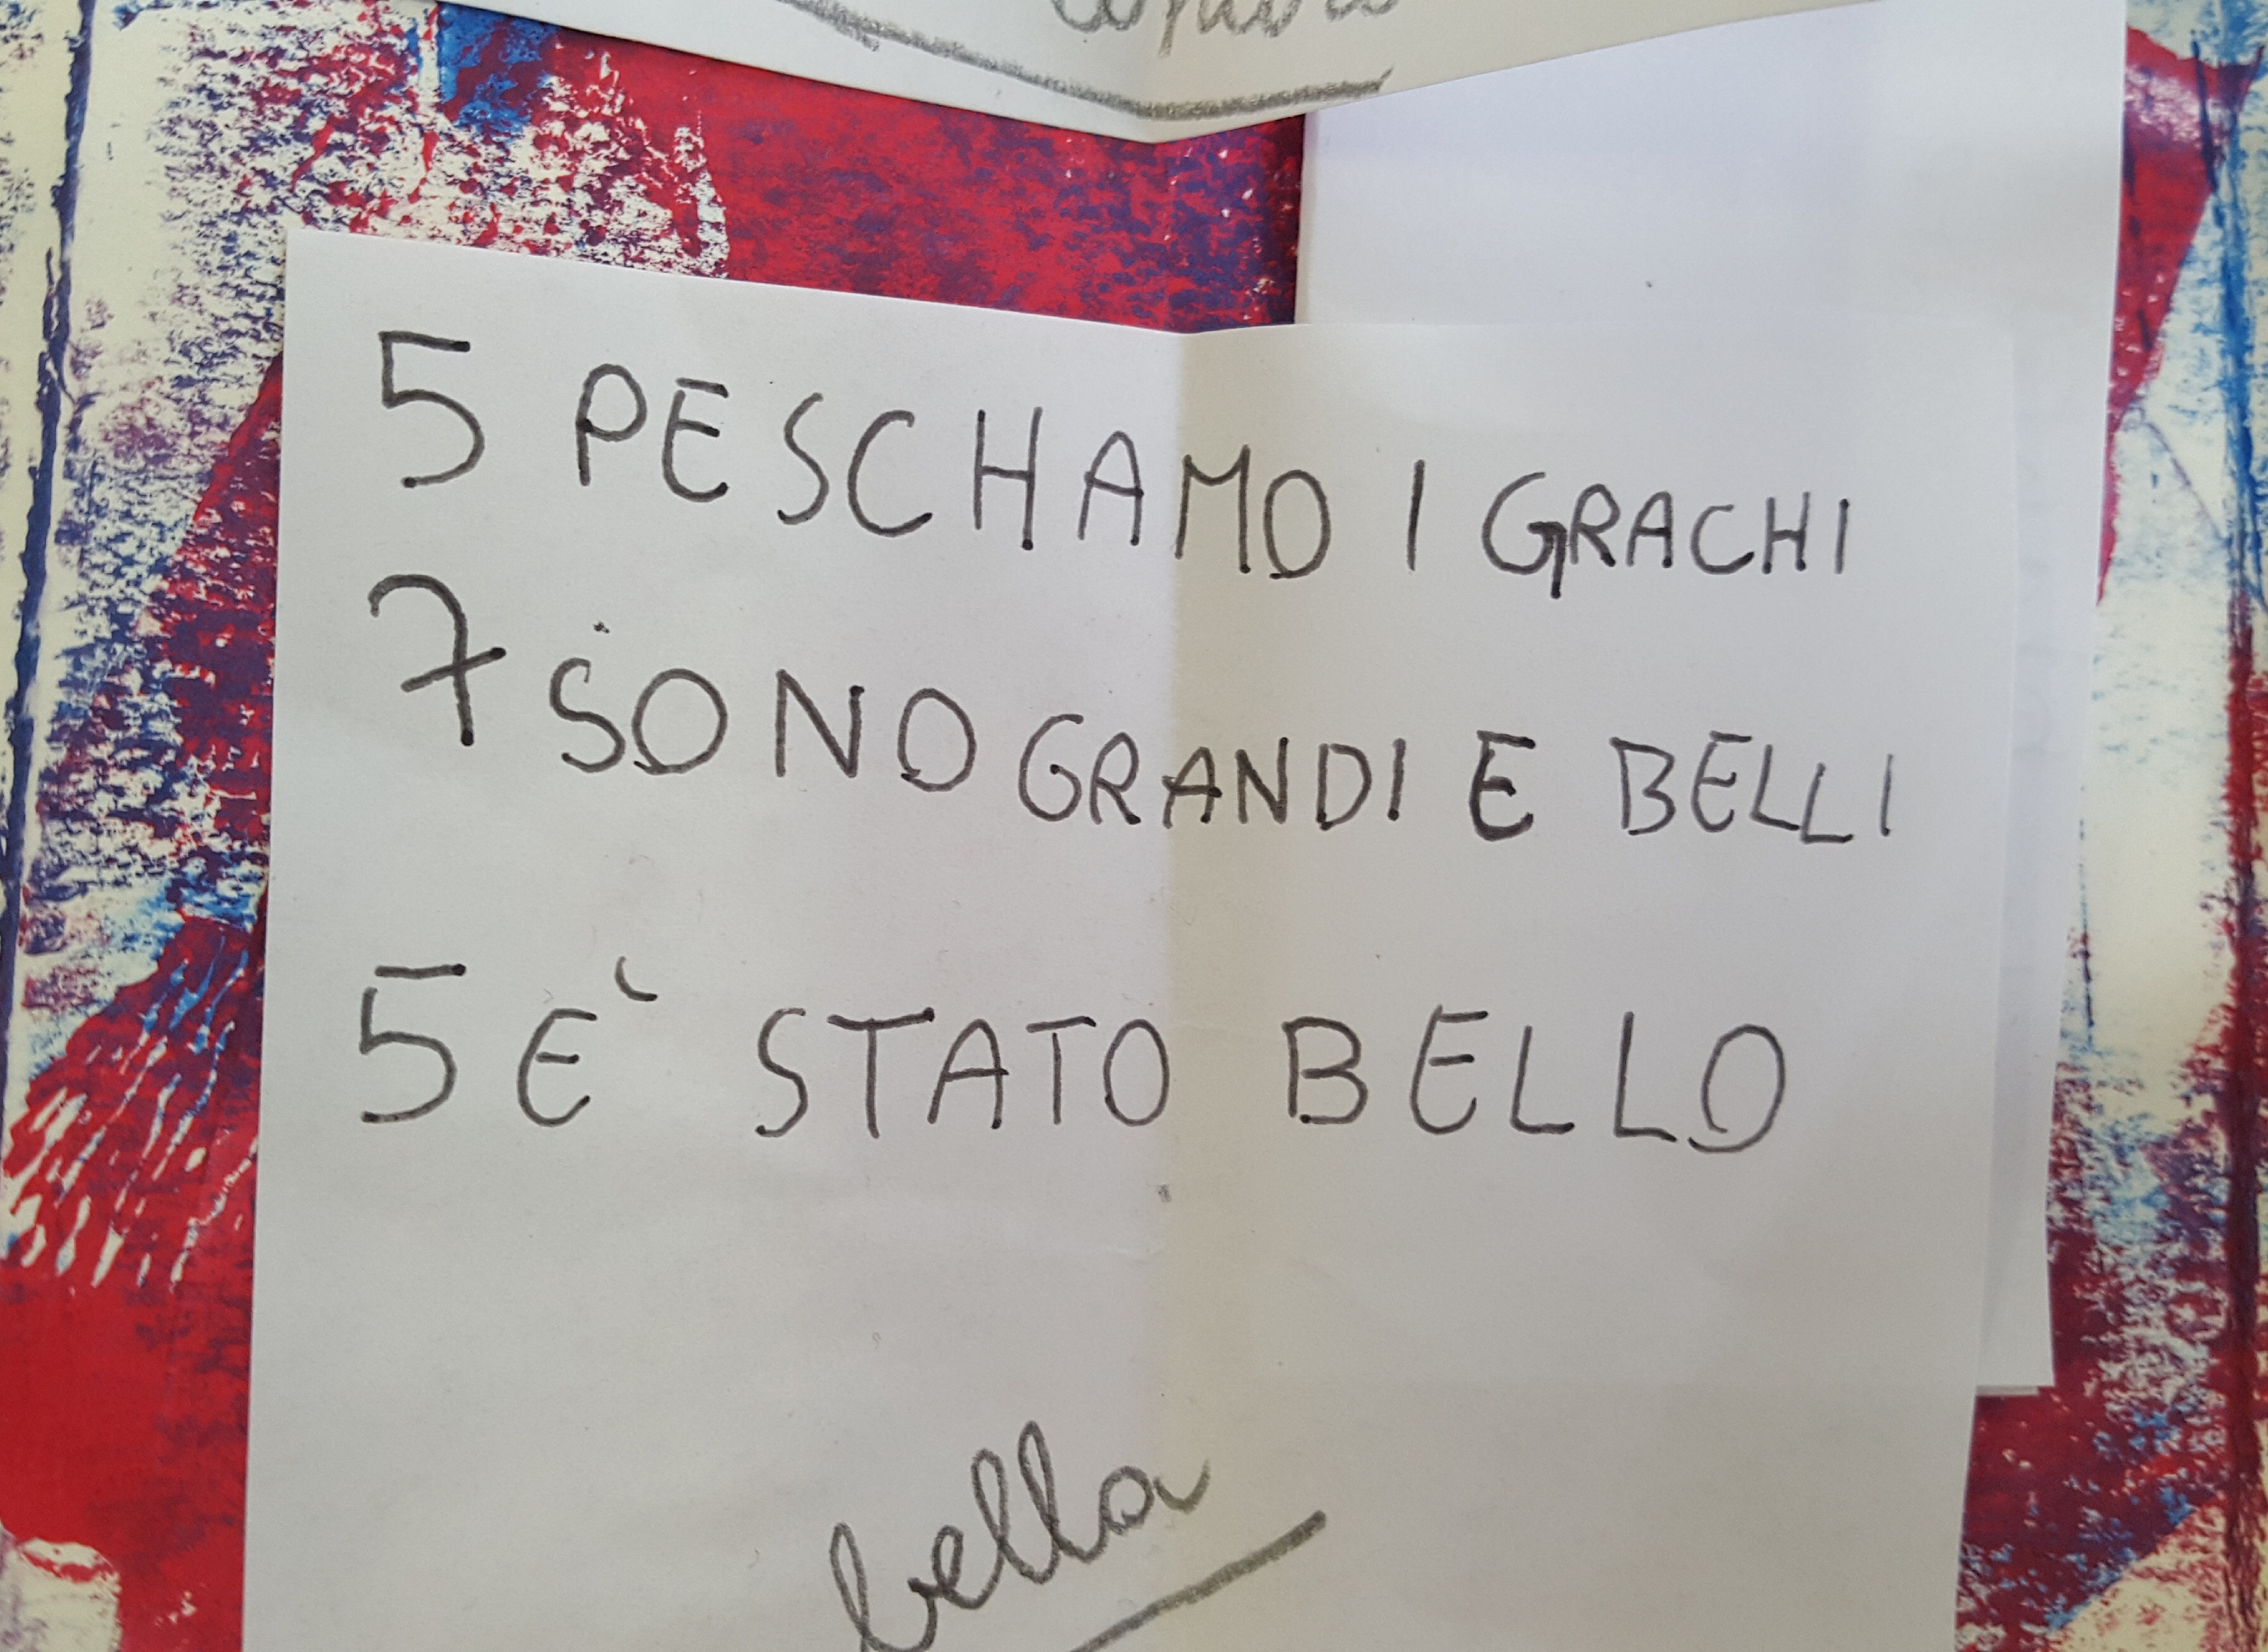 5 PESCHAMO I GRACHI
7 SONO GRANDI E BELLI
5 E` STATO BELLO
bella